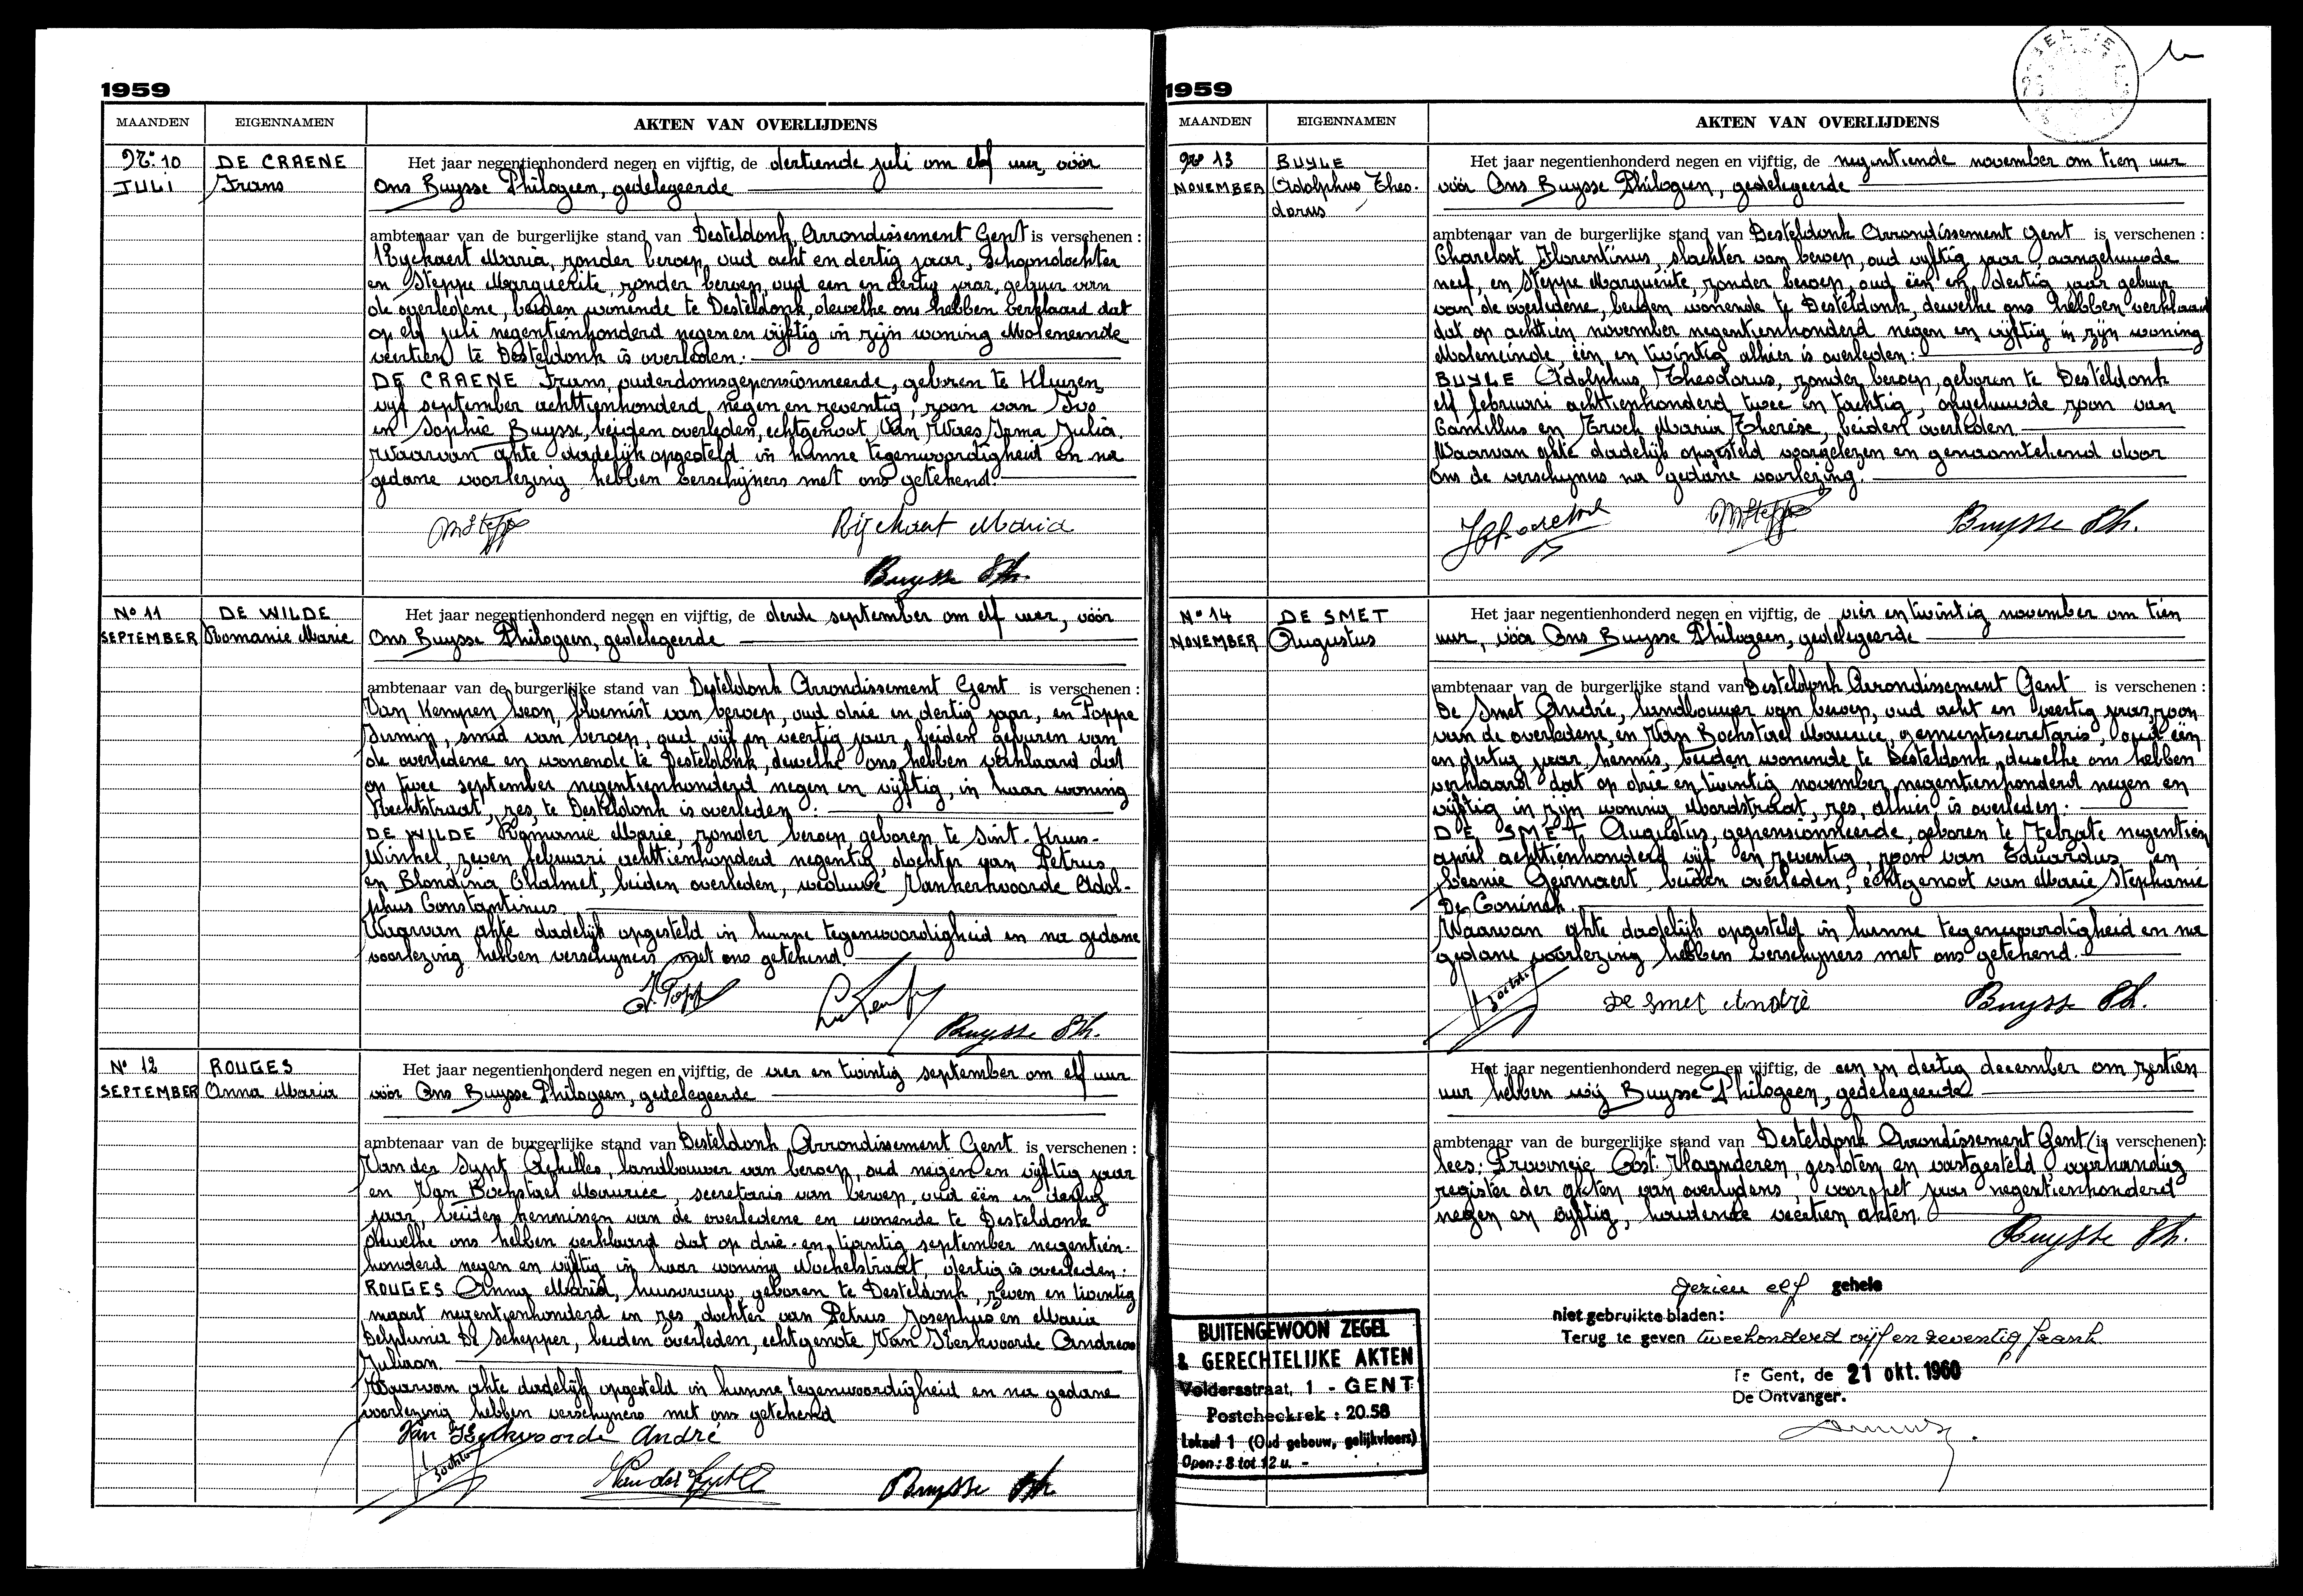 1959
MAANDEN EIGENNAMEN AKTEN VAN OVERLIJDENS
No 10 DE CRAENE Het jaar negentienhonderd negen en vijftig, de dertiende juli om elf uur, vóór
JULI Frans Ons Buysse Philogeen, gedelegeerde
ambtenaar van de burgerlijke stand van Desteldonk, Arrondissement Gent is verschenen :
Rychaert Maria, zonder beroep, oud acht en dertig jaar, schoondochter
en Steppe Marguerite, zonder beroep, oud een en dertig jaar, gebuur van
de overledene, beiden wonende te Desteldonk, dewelke ons hebben verklaard dat
op elf juli negentienhonderd negen en vijftig in zijn woning Moleneinde
veertien te Desteldonk is overleden:
DE CRAENE Frans, ouderdomsgepensionneerde, geboren te Kluizen,
vijf september achttienhonderd negen en zeventig, zoon van Ivo
en Sophie Buysse, beiden overleden, echtgenoot Van Waes Irma Julia.
Waarvan akte dadelijk opgesteld in hunne tegenwoordigheid en na
gedane voorlezing hebben verschijners met ons getekend.
MSteppe Rijchaert Maria
Buysse Ph.
No 11 DE WILDE Het jaar negentienhonderd negen en vijftig, de derde september om elf uur, vóór
SEPTEMBER Romanie Marie Ons Buysse Philogeen, gedelegeerde
ambtenaar van de burgerlijke stand van Desteldonk Arrondissement Gent is verschenen :
Van Kempen Leon, bloemist van beroep, oud drie en dertig jaar, en Poppe
Firmin, smid van beroep, oud vijf en veertig jaar, beiden geburen van
de overledene en wonende te Desteldonk, dewelke ons hebben verklaard dat
op twee september negentienhonderd negen en vijftig, in haar woning
Rechtstraat, zes, te Desteldonk is overleden :
DE WILDE Romanie Marie, zonder beroep, geboren te Sint-Kruis-
Winkel, zeven februari achttienhonderd negentig, dochter van Petrus
en Blondina Chalmet, beiden overleden, weduwe Vankerkvoorde Adol-
phus Constantinus
Waarvan akte dadelijk opgesteld in hunne tegenwoordigheid en na gedane
voorlezing hebben verschijners met ons getekend.
Buysse Ph.
No 12 ROUGES Het jaar negentienhonderd negen en vijftig, de vier en twintig september om elf uur
SEPTEMBER Anna Maria vóór Ons Buysse Philogeen, gedelegeerde
ambtenaar van de burgerlijke stand van Desteldonk, Arrondissement Gent is verschenen :
Van der Sypt Achilles, landbouwer van beroep, oud negen en vijftig jaar
en Van Bochstael Maurice, secretaris van beroep, oud één en dertig
jaar, beiden kennissen van de overledene en wonende te Desteldonk
dewelke ons hebben verklaard dat op drie-en twintig september negentien-
honderd negen en vijftig in haar woning dertig is overleden:
ROUGES Anna Maria, huisvrouw, geboren te Desteldonk, zeven en twintig
maart negentienhonderd en zes dochter van Petrus Josephus en Maria
Delphinia De Schepper, beiden overleden, echtgenote Van Kerkvoorde Andreas
Juliaan.
Waarvan akte dadelijk opgesteld in hunne tegenwoordigheid en na gedane
voorlezing hebben verschijners met ons getekend
Van Kerkvoorde André
Van der Sypt A Buysse Ph.
1959
MAANDEN EIGENNAMEN AKTEN VAN OVERLIJDENS
No 13 BUYLE Het jaar negentienhonderd negen en vijftig, de negentiende november om tien uur
NOVEMBER Adolphus Theo- vóór Ons Buysse Philogeen, gedelegeerde
dorus
ambtenaar van de burgerlijke stand van Desteldonk Arrondissement Gent is verschenen :
Florentinus, slachter van beroep, oud vijftig jaar, aangehuwde
neef, en Steppe Marguerite, zonder beroep, oud één en dertig jaar gebuur
van de overledene, beiden wonende te Desteldonk, dewelke ons hebben verklaard
dat op achttien november negentienhonderd negen en vijftig in zijn woning
Moleneinde, één en twintig alhier is overleden:
BUYLE Adolphus Theodorus, zonder beroep, geboren te Desteldonk
elf februari achttienhonderd twee en tachtig, ongehuwde zoon van
Camillus en Maria Therese, beiden overleden
Waarvan akte dadelijk opgesteld voorgelezen en genaamtekend door
Ons de verschijners na gedane voorlezing.
MSteppe Buysse Ph.
No 14 DE SMET Het jaar negentienhonderd negen en vijftig, de vier en twintig november om tien
NOVEMBER Augustus uur, vóór Ons Buysse Philogeen, gedelegeerde
ambtenaar van de burgerlijke stand van Desteldonk Arrondissement Gent is verschenen :
De Smet André, landbouwer van beroep, oud acht en veertig jaar, zoon
van de overledene, en Van Bochstael Maurice, gemeentesecretaris, oud één
en dertig jaar, kennis, beiden wonende te Desteldonk, dewelke ons hebben
verklaard dat op drie en twintig november negentienhonderd negen en
vijftig in zijn woning Noordstraat, zes, alhier is overleden:
DE SMET Augustus, gepensionneerde, geboren te Zelzate negentien
april achttienhonderd vijf en zeventig, zoon van Eduardus en
Leonie Geirnaert, beiden overleden, echtgenoot van Marie Stephanie
De Coninck.
Waarvan akte dadelijk opgesteld in hunne tegenwoordigheid en na
gedane voorlezing hebben verschijners met ons getekend.
De Smet André Buysse Ph.
Het jaar negentienhonderd negen en vijftig, de een en dertig december om zestien
uur hebben wij Buysse Philogeen, gedelegeerde
ambtenaar van de burgerlijke stand van Desteldonk Arrondissement Gent (is verschenen):
lees: Provincie Oost Vlaanderen, gesloten en vastgesteld, overhandig
register der akten van overlijdens, voor het jaar negentienhonderd
negen en vijftig, houdende veertien akten.
Buysse Ph.
Gezien elf gehele
niet gebruikte bladen:
Terug te geven tweehonderd vijf en zeventig frank
Te Gent, de 21 okt. 1960
De Ontvanger.
BUITENGEWOON ZEGEL
& GERECHTELIJKE AKTEN
Veldersstraat, 1 - GENT
Postcheckrek : 20.58
Lokaal 1 (Oud gebouw, gelijkvloers)
Open : 8 tot 12 u. -